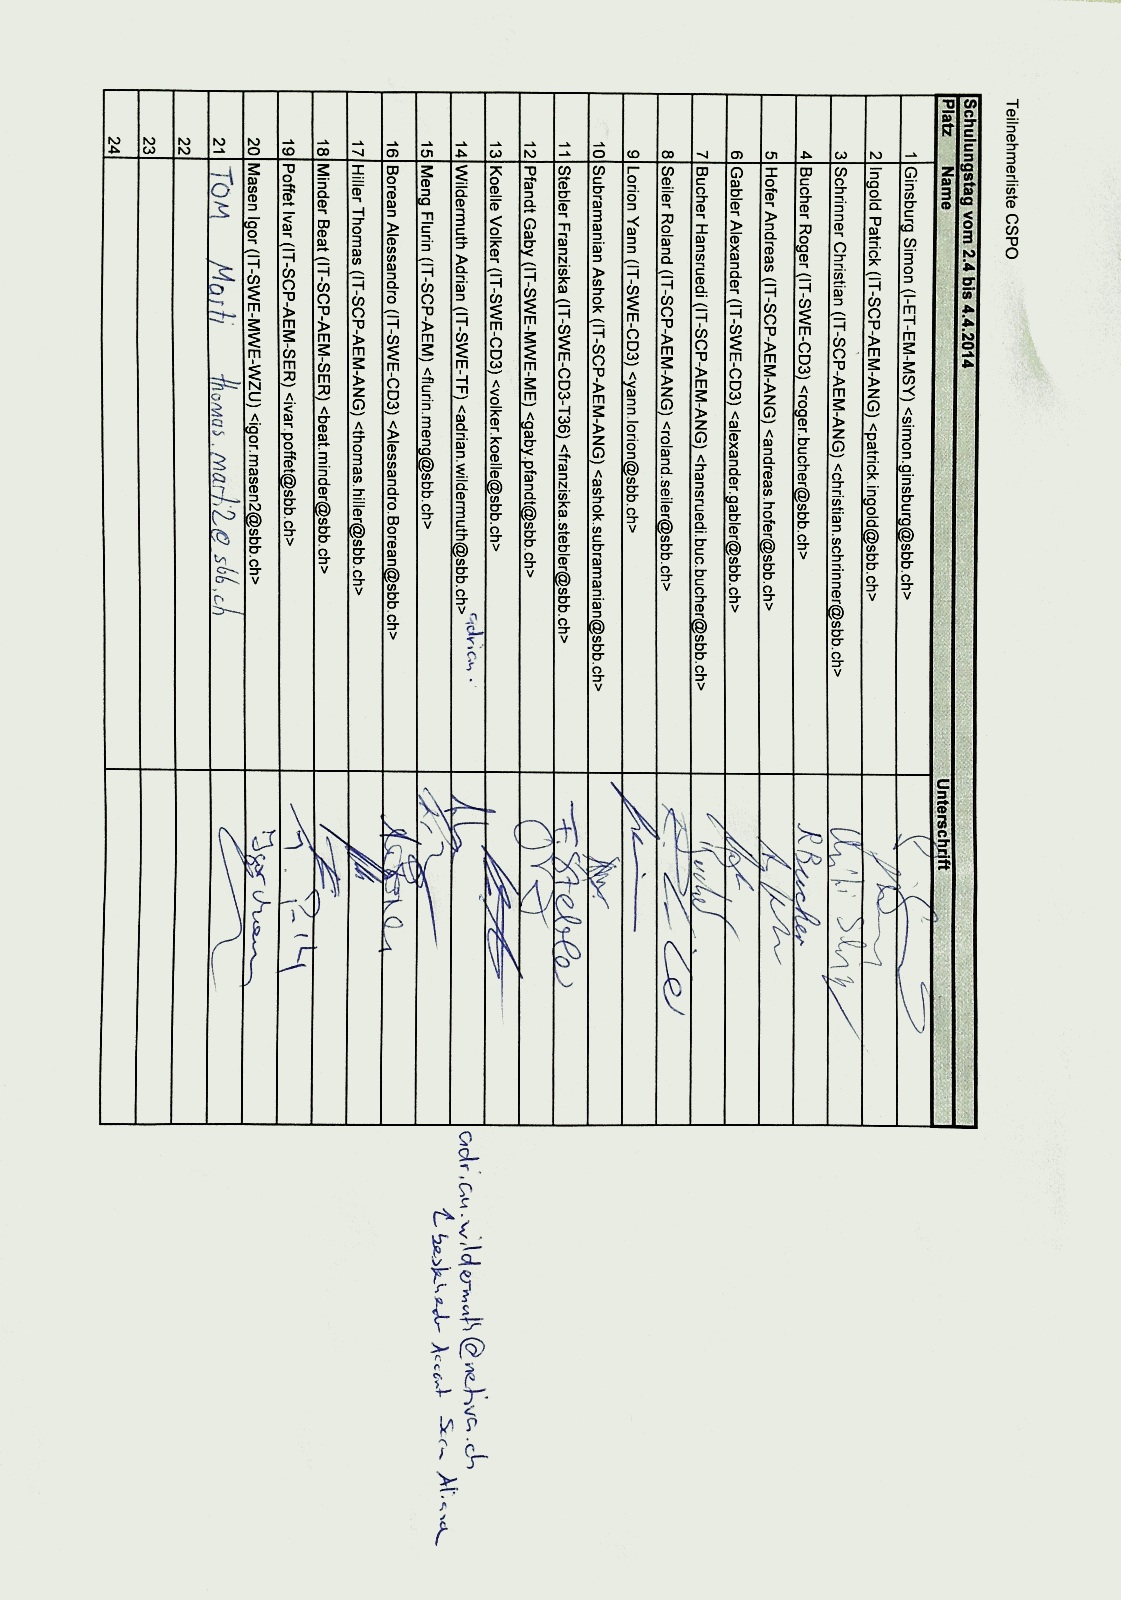 Teilnehmerliste CSPO
Schulungstag vom 2.4 bis 4.4.2014
Platz Name Unterschrift
1 Ginsburg Simon (I-ET-EM-MSY) <simon.ginsburg@sbb.ch>
2 Ingold Patrick (IT-SCP-AEM-ANG) <patrick.ingold@sbb.ch>
3 Schrinner Christian (IT-SCP-AEM-ANG) <christian.schrinner@sbb.ch>
4 Bucher Roger (IT-SWE-CD3) <roger.bucher@sbb.ch> RBucher
5 Hofer Andreas (IT-SCP-AEM-ANG) <andreas.hofer@sbb.ch>
6 Gabler Alexander (IT-SWE-CD3) <alexander.gabler@sbb.ch>
7 Bucher Hansruedi (IT-SCP-AEM-ANG) <hansruedi.buc.bucher@sbb.ch>
8 Seiler Roland (IT-SCP-AEM-ANG) <roland.seiler@sbb.ch>
9 Lorion Yann (IT-SWE-CD3) <yann.lorion@sbb.ch>
10 Subramanian Ashok (IT-SCP-AEM-ANG) <ashok.subramanian@sbb.ch>
11 Stebler Franziska (IT-SWE-CD3-T36) <franziska.stebler@sbb.ch> F. Stebler
12 Pfandt Gaby (IT-SWE-MWE-ME) <gaby.pfandt@sbb.ch>
13 Koelle Volker (IT-SWE-CD3) <volker.koelle@sbb.ch>
14 Wildermuth Adrian (IT-SWE-TF) <adrian.wildermuth@sbb.ch> adrian. adrian.wildermuth@netiva.ch
15 Meng Flurin (IT-SCP-AEM) <flurin.meng@sbb.ch> ↑ Account Scrum
16 Borean Alessandro (IT-SWE-CD3) <Alessandro.Borean@sbb.ch>
17 Hiller Thomas (IT-SCP-AEM-ANG) <thomas.hiller@sbb.ch>
18 Minder Beat (IT-SCP-AEM-SER) <beat.minder@sbb.ch>
19 Poffet Ivar (IT-SCP-AEM-SER) <ivar.poffet@sbb.ch>
20 Masen Igor (IT-SWE-MWE-WZU) <igor.masen2@sbb.ch>
21 TOM Marti thomas.marti2@sbb.ch
22
23
24